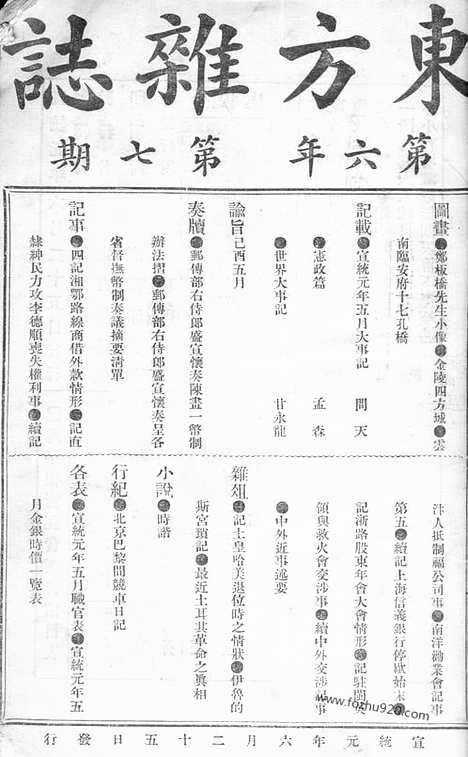 東方雜誌
第六年第七期
圖畫 鄭板橋先生小像 金陵四方城 雲
南臨安府十七孔橋
記載 宣統元年五月大事記 問天
憲政篇 孟森
世界大事記 甘永龍
諭旨 己酉五月
奏牘 郵傳部右侍郎盛宣懷奏陳畫一幣制
辦法摺 郵傳部右侍郎盛宣懷奏呈各
省督撫幣制奏議摘要清單
記事 四記湘鄂路線商借外款情形 記直
隸紳民力攻李德順喪失權利事 續記
汴人抵制福公司事 南洋勸業會記事
第五 續記上海信義銀行停歇始末
記浙路股東年會大會情形 記駐閩英
領與救火會交涉事 續中外交涉記事
中外近事述要
雜俎 記土皇哈美退位時之情狀 伊魯的
斯宮瑣記 最近土耳其革命之眞相
小說 時諧
行紀 北京巴黎間競車日記
各表 宣統元年五月職官表 宣統元年五
月金銀時價一覽表
宣統元年六月二十五日發行
www.fozhu920.com